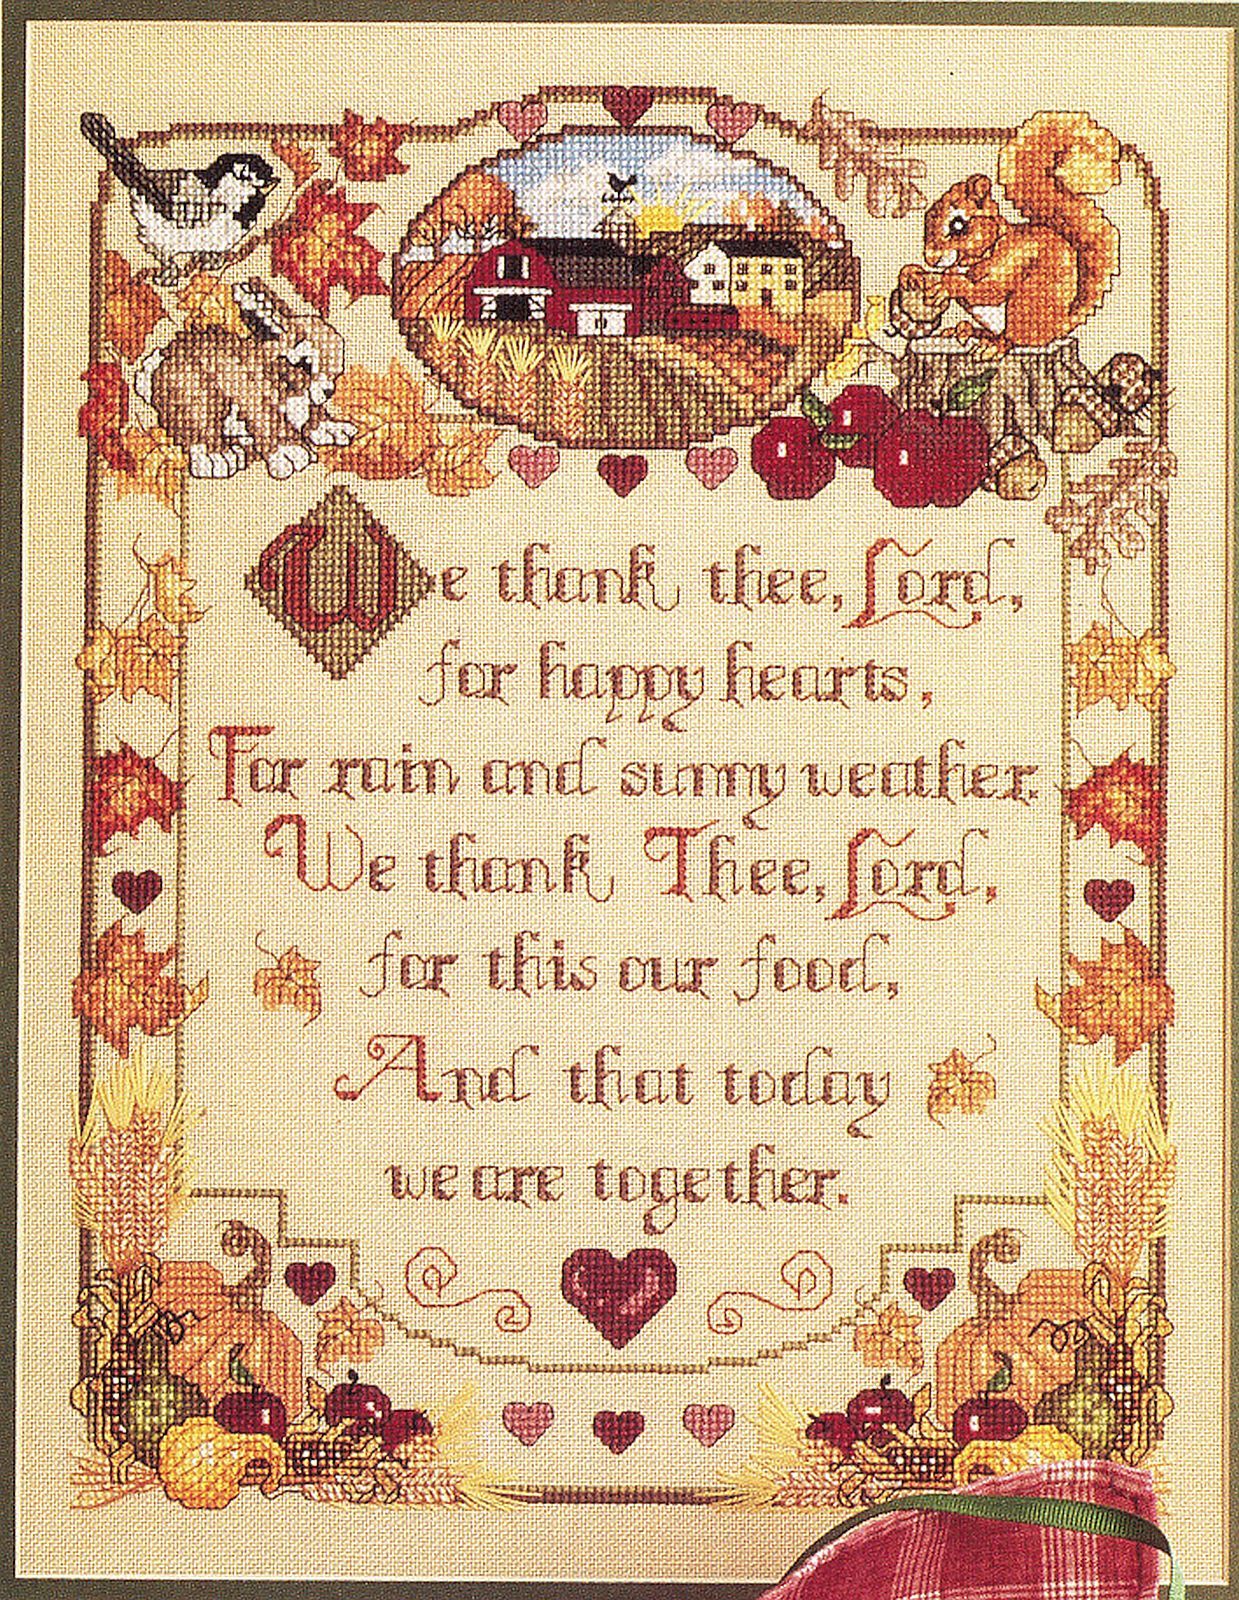 We thank thee, Lord,
for happy hearts,
For rain and sunny weather.
We thank Thee, Lord,
for this our food,
And that today
we are together.